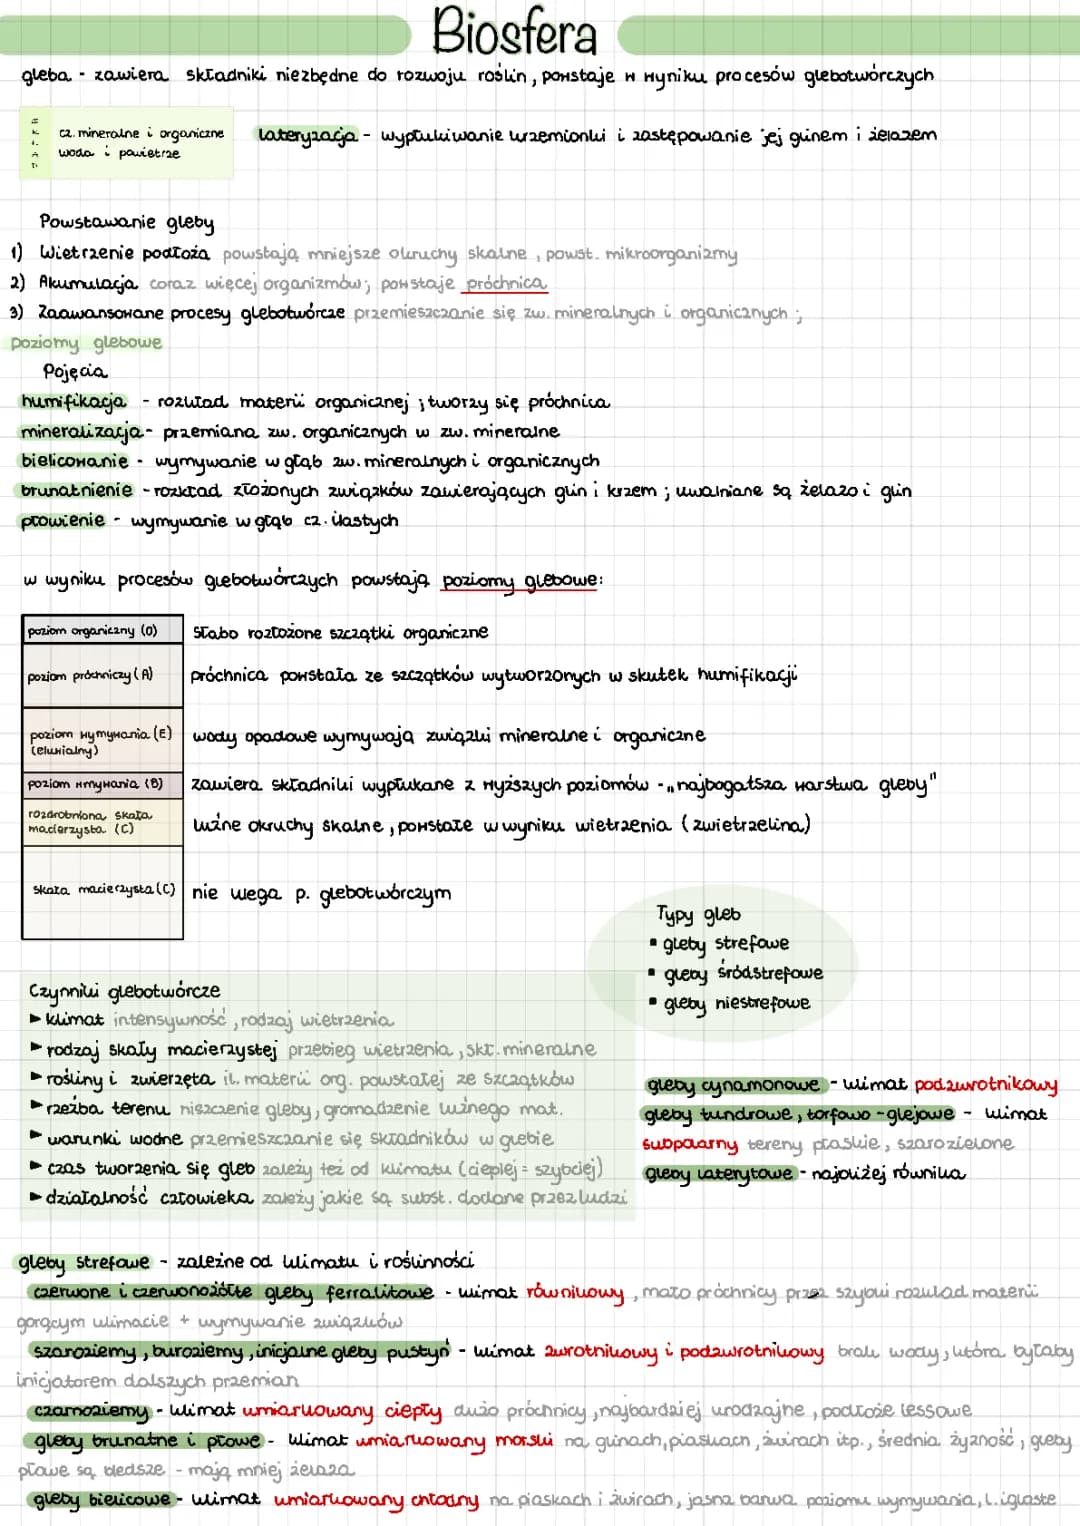 Biosfera
gleba - zawiera składniki niezbędne do rozwoju roślin, powstaje w wyniku procesów glebotwórczych
SKŁAD
cz. mineralne i organiczne
woda i powietrze
lateryzacja - wypłukiwanie krzemionki i zastępowanie jej glinem i żelazem
Powstawanie gleby
1) Wietrzenie podłoża powstają mniejsze okruchy skalne, powst. mikroorganizmy
2) Akumulacja coraz więcej organizmów; powstaje próchnica
3) Zaawansowane procesy glebotwórcze przemieszczanie się zw. mineralnych i organicznych;
poziomy glebowe
Pojęcia
humifikacja - rozkład materii organicznej; tworzy się próchnica
mineralizacja - przemiana zw. organicznych w zw. mineralne
bielicowanie - wymywanie w głąb zw. mineralnych i organicznych
brunatnienie - rozkład złożonych związków zawierających glin i krzem; uwalniane są żelazo i glin
płowienie - wymywanie w głąb cz. ilastych
w wyniku procesów glebotwórczych powstają poziomy glebowe:
poziom organiczny (O) słabo rozłożone szczątki organiczne
poziom próchniczy (A) próchnica powstała ze szczątków wytworzonych w skutek humifikacji
poziom wymywania (E) (eluwialny) wody opadowe wymywają związki mineralne i organiczne
poziom wmywania (B) zawiera składniki wypłukane z wyższych poziomów - „najbogatsza warstwa gleby"
rozdrobniona skała macierzysta (C) luźne okruchy skalne, powstałe w wyniku wietrzenia (zwietrzelina)
skała macierzysta (C) nie ulega p. glebotwórczym
Typy gleb
▪ gleby strefowe
▪ gleby śródstrefowe
▪ gleby niestrefowe
Czynniki glebotwórcze
► klimat intensywność, rodzaj wietrzenia
► rodzaj skały macierzystej przebieg wietrzenia, skł. mineralne
► rośliny i zwierzęta il. materii org. powstałej ze szczątków
► rzeźba terenu niszczenie gleby, gromadzenie luźnego mat.
► warunki wodne przemieszczanie się składników w glebie
► czas tworzenia się gleb zależy też od klimatu (cieplej = szybciej)
► działalność człowieka zależy jakie są subst. dodane przez ludzi
gleby cynamonowe - klimat podzwrotnikowy
gleby tundrowe, torfowo-glejowe - klimat
subpolarny tereny płaskie, szarozielone
gleby laterytowe - najbliżej równika
gleby strefowe - zależne od klimatu i roślinności
czerwone i czerwonożółte gleby ferralitowe - klimat równikowy, mało próchnicy przez szybki rozkład materii
gorącym klimacie + wymywanie związków
szaroziemy, buroziemy, inicjalne gleby pustyń - klimat zwrotnikowy i podzwrotnikowy brak wody, która byłaby
inicjatorem dalszych przemian
czarnoziemy - klimat umiarkowany ciepły dużo próchnicy, najbardziej urodzajne, podłoże lessowe
gleby brunatne i płowe - klimat umiarkowany morski na glinach, piaskach, żwirach itp., średnia żyzność, gleby
płowe są bledsze - mają mniej żelaza
gleby bielicowe - klimat umiarkowany chłodny na piaskach i żwirach, jasna barwa poziomu wymywania, l. iglaste